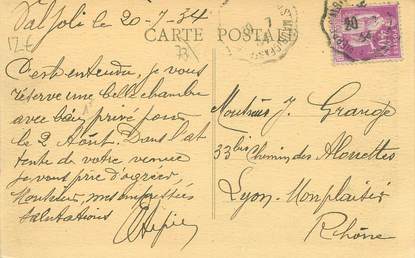 Val Joli le 20-7-34
CARTE POSTALE
C'est entendu, je vous
réserve une belle chambre
avec bain privé pour
le 2 Août. Dans l'at
tente de votre venue
je vous prie d'agréer
Monsieur, mes empressées
salutations
Monsieur J. Grange
33bis Chemin des Alouettes
Lyon-Monplaisir
Rhône